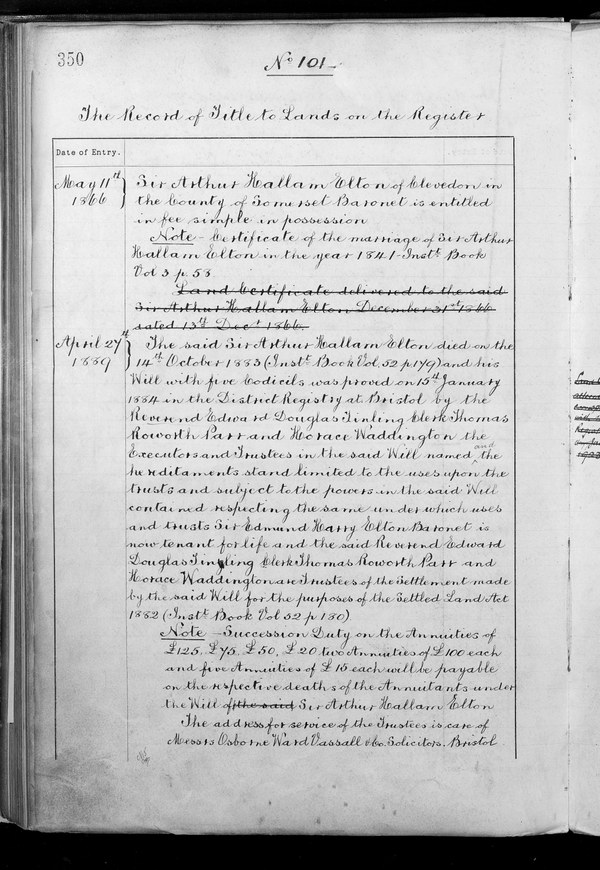 350
No 101
The Record of Title to Lands on the Register
Date of Entry.
May 11th 1866
Sir Arthur Hallam Elton of Clevedon in
the County of Somerset Baronet is entitled
in fee simple in possession
Note - Certificate of the marriage of Sir Arthur
Hallam Elton in the year 1841 - Instt Book
Vol 3 p 53
Land Certificate delivered to the said
Sir Arthur Hallam Elton December 31st 1866
dated 13th Decr 1866.
April 27th 1889
The said Sir Arthur Hallam Elton died on the
14th October 1883 (Instt Book Vol. 52 p 179) and his
Will with five Codicils was proved on 15th January
1884 in the District Registry at Bristol by the
Reverend Edward Douglas Tinling Clerk Thomas
Roworth Parr and Horace Waddington the
Executors and Trustees in the said Will named and the
hereditaments stand limited to the uses upon the
trusts and subject to the powers in the said Will
contained respecting the same under which uses
and trusts Sir Edmund Harry Elton Baronet is
now tenant for life and the said Reverend Edward
Douglas Tinling Clerk Thomas Roworth Parr and
Horace Waddington are Trustees of the Settlement made
by the said Will for the purposes of the Settled Land Act
1882 (Instt Book Vol 52 p 180)
Note - Succession Duty on the Annuities of
£125, £75, £50, £20 two Annuities of £100 each
and five Annuities of £15 each will be payable
on the respective deaths of the Annuitants under
the Will of the said Sir Arthur Hallam Elton
The address for service of the Trustees is care of
Messrs Osborne Ward Vassall & Co. Solicitors. Bristol